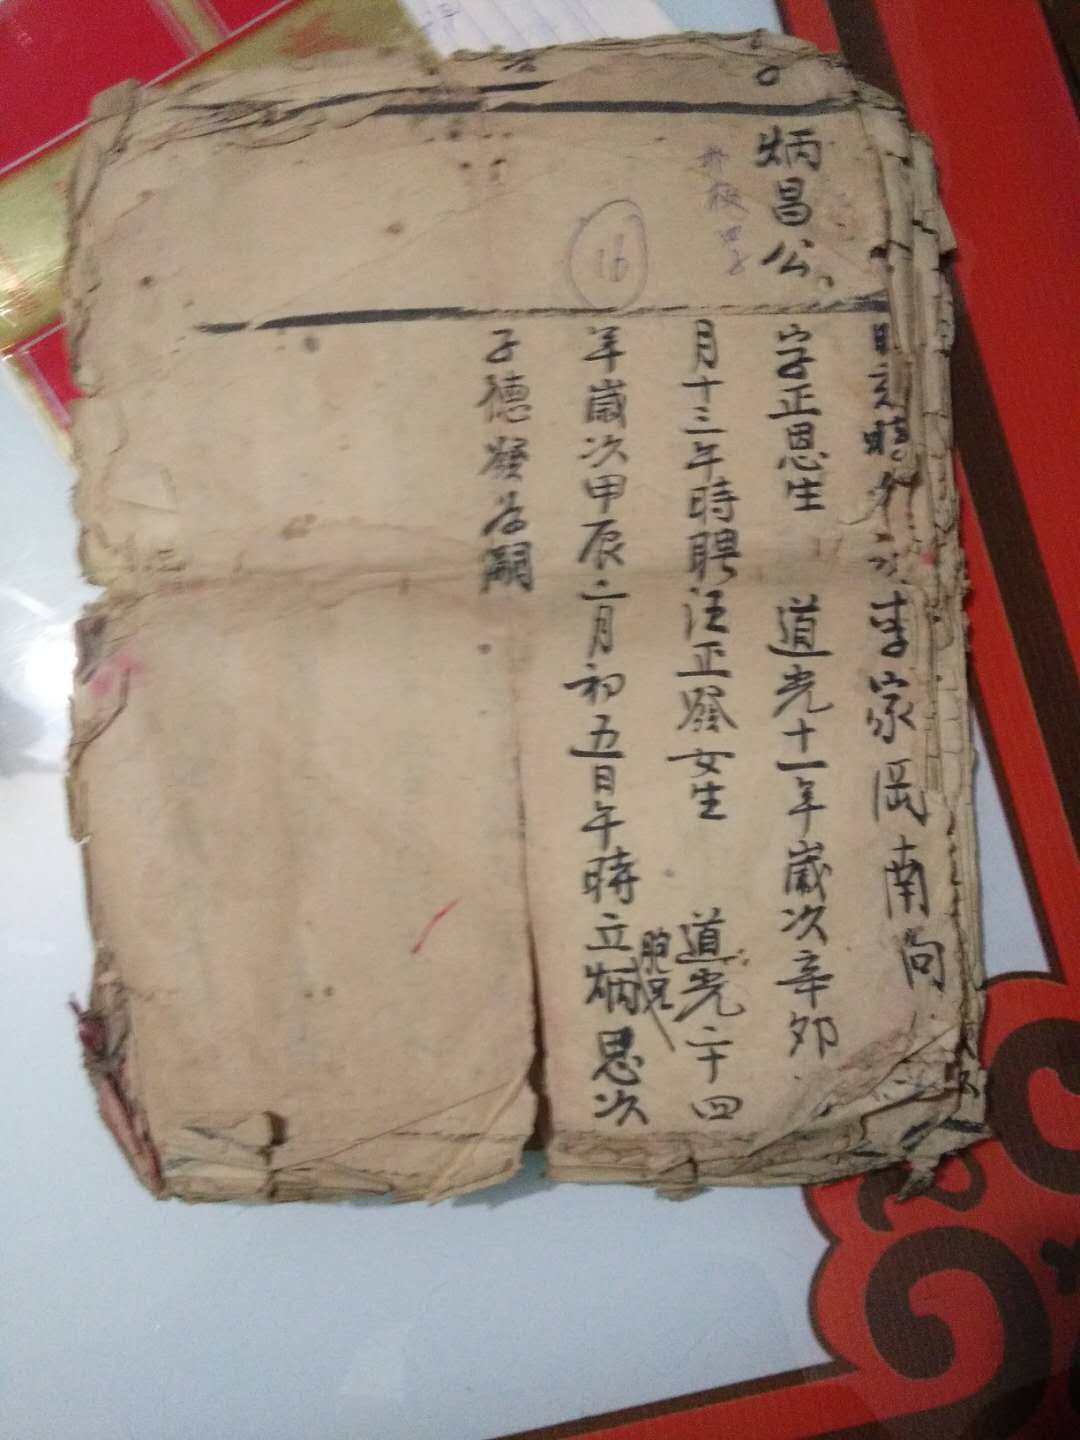 日亥時 李家岡南向
炳昌公
字正恩生 道光十一年歲次辛卯
月十三午時聘汪正發女生 道光二十四
胞兄
16
年歲次甲辰二月初五日午時立炳恩次
子德發為嗣